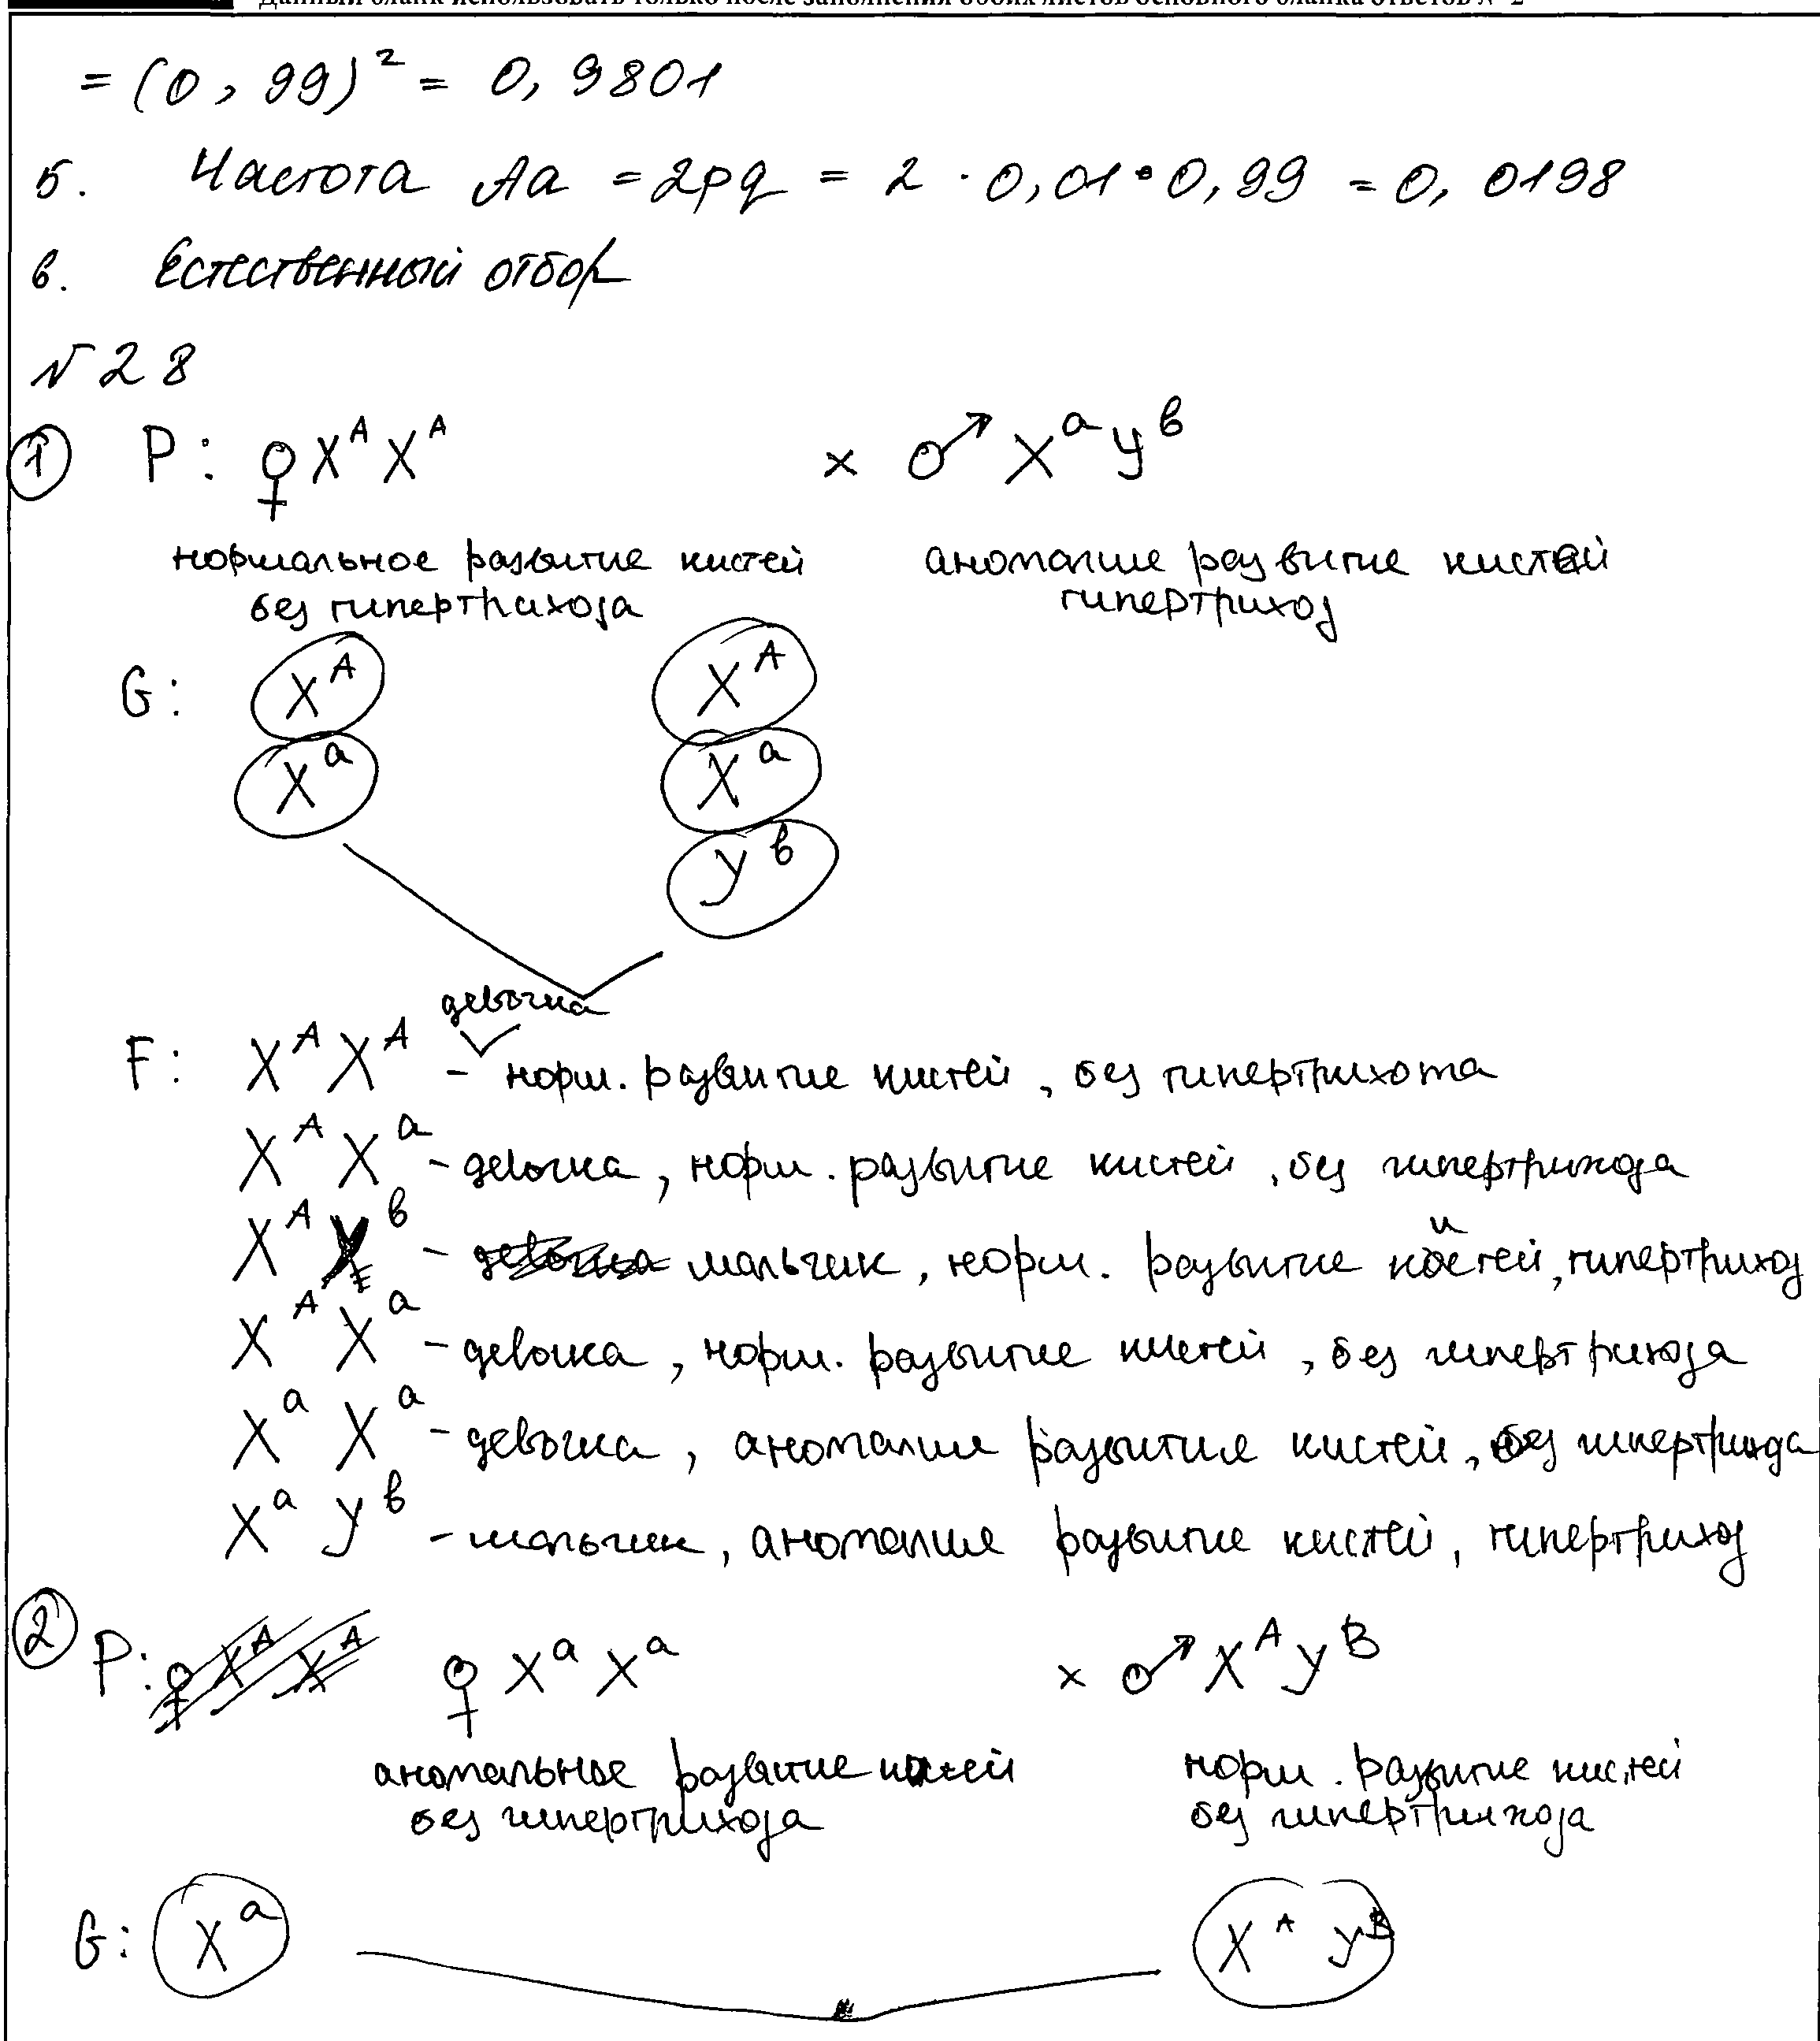 Данный бланк использовать только после заполнения обоих листов основного бланка ответов № 2
= (0, 99)² = 0, 9801
б. Частота Aa = 2pq = 2 · 0,01 · 0,99 = 0, 0198
в. Естественный отбор
№ 28
① P: ♀ X^A X^A × ♂ X^a Y^b
нормальное развитие кистей аномалие развитие кистей
без гипертрихоза гипертрихоз
G: X^A X^A
X^a X^a
Y^b
девочка
F: X^A X^A - норм. развитие кистей, без гипертрихота
X^A X^a - девочка, норм. развитие кистей, без гипертрихоза
X^A Y^b - мальчик, норм. развитие кистей, гипертрихоз
X^A X^a - девочка, норм. развитие кистей, без гипертрихоза
X^a X^a - девочка, аномалие развития кистей, без гипертрихоза
X^a Y^b - мальчик, аномалие развитие кистей, гипертрихоз
② P: ♀ X^a X^a × ♂ X^A Y^B
аномальное развитие кистей норм. развитие кистей
без гипертрихоза без гипертрихоза
G: X^a X^A Y^B